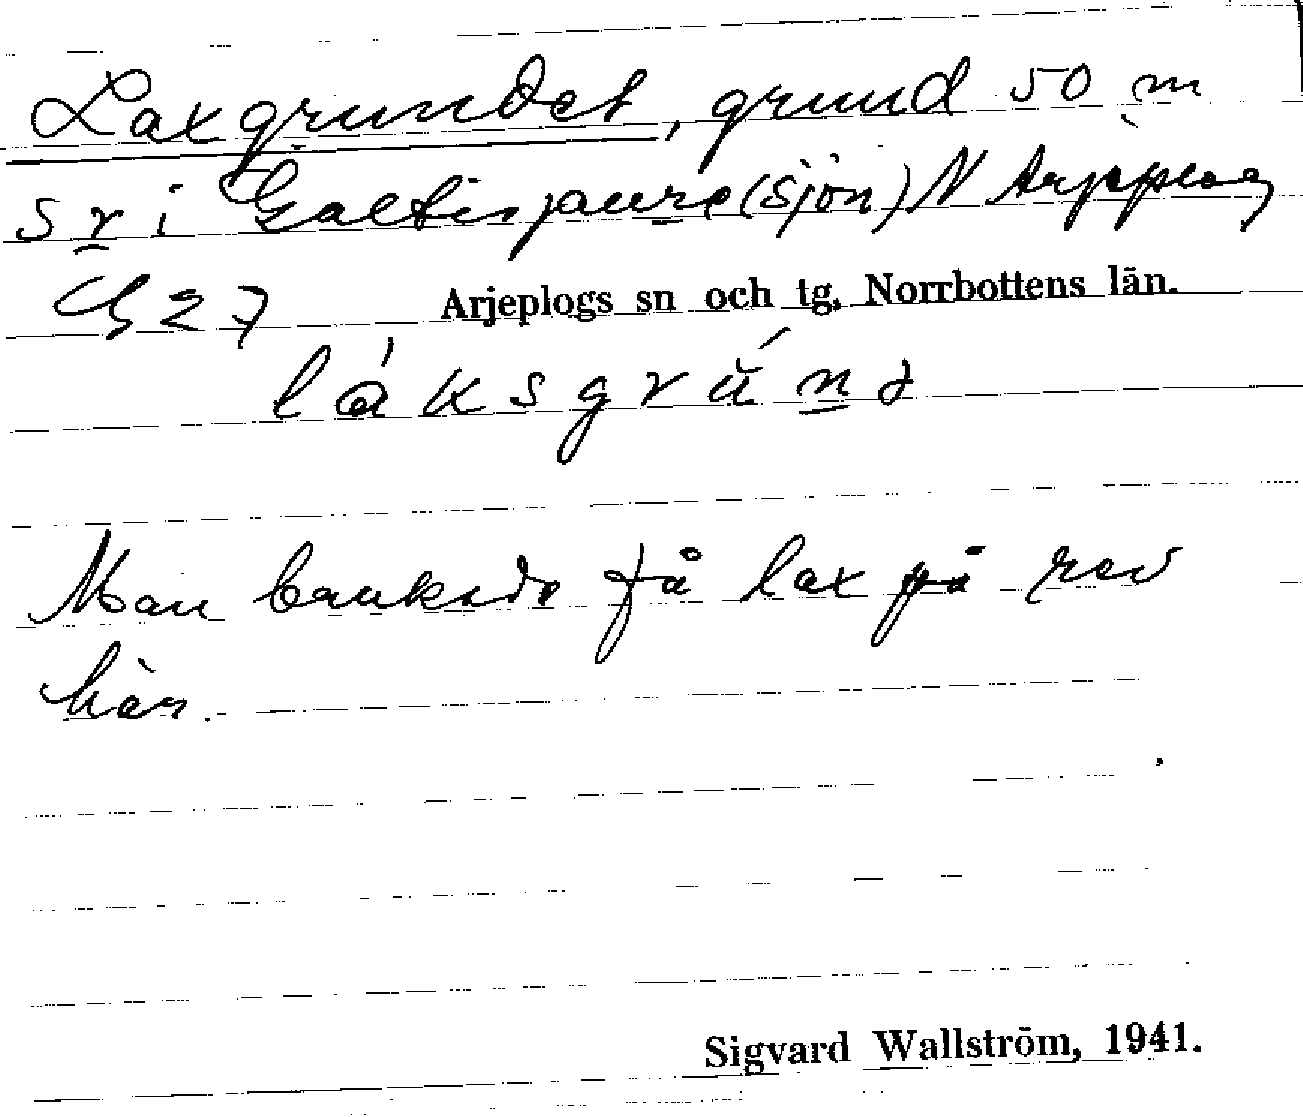 Laxgrundet, grund 50 m
s v i Galtisjaure (sjön) N Arjeplog
G 27 Arjeplogs sn och tg, Norrbottens län.
láksgrŭ́nd
Man brukade få lax på rev
här.
Sigvard Wallström, 1941.